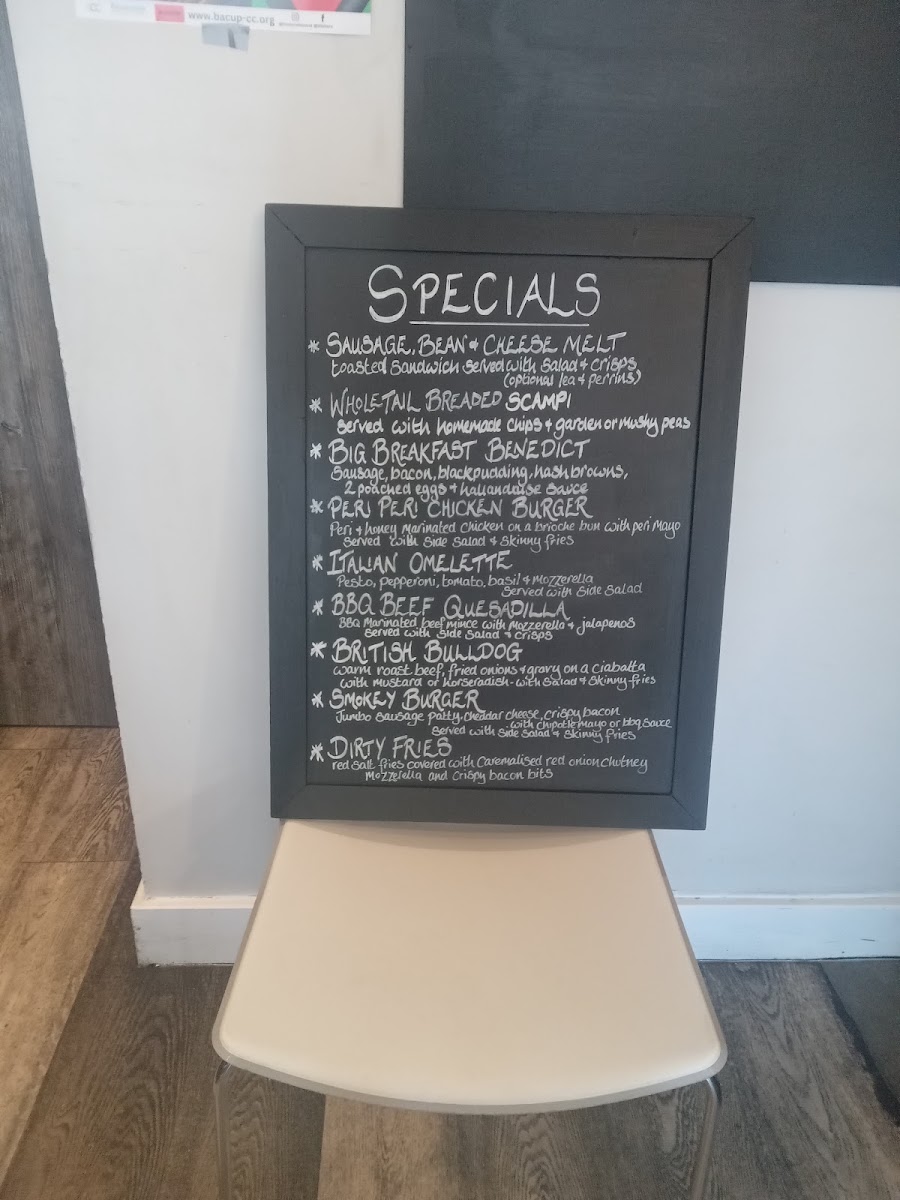 www.bacup-cc.org
SPECIALS
* SAUSAGE, BEAN & CHEESE MELT
toasted sandwich served with salad & crisps
(optional lea & perrins)
* WHOLETAIL BREADED SCAMPI
served with homemade chips & garden or mushy peas
* BIG BREAKFAST BENEDICT
Sausage, bacon, blackpudding, hash browns,
2 poached eggs & hallandaise sauce
* PERI PERI CHICKEN BURGER
Peri & honey marinated chicken on a brioche bun with peri mayo
served with side salad & skinny fries
* ITALIAN OMELETTE
Pesto, pepperoni, tomato, basil & mozzerella
served with side salad
* BBQ BEEF QUESADILLA
BBQ marinated beef mince with mozzerella & jalapenos
served with side salad & crisps
* BRITISH BULLDOG
warm roast beef, fried onions & gravy on a ciabatta
with mustard or horseradish - with salad & skinny fries
* SMOKEY BURGER
Jumbo sausage patty, cheddar cheese, crispy bacon
with chipotle mayo or bbq sauce
served with side salad & skinny fries
* DIRTY FRIES
red salt fries covered with caremalised red onion chutney
mozzerella and crispy bacon bits